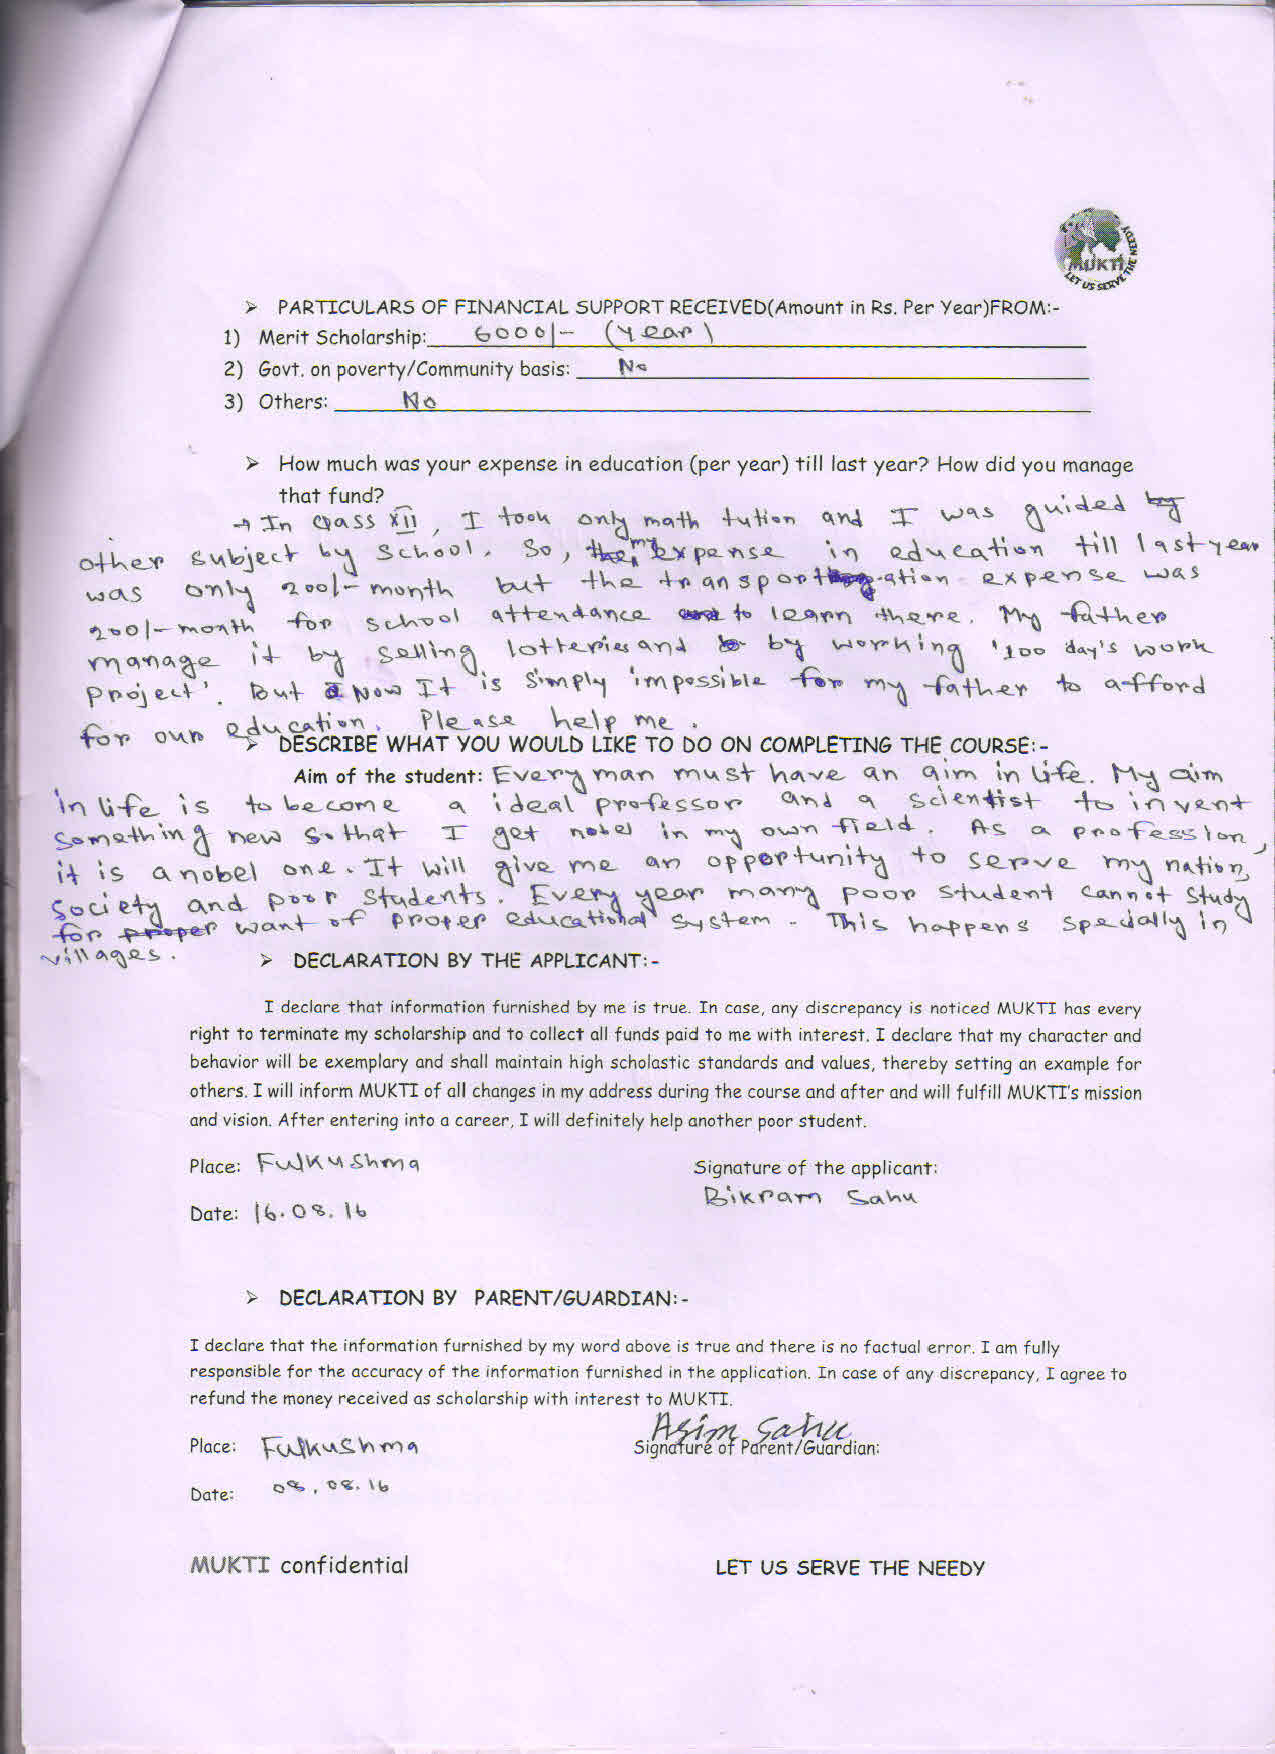 MUKTI
LET US SERVE THE NEEDY
➢ PARTICULARS OF FINANCIAL SUPPORT RECEIVED(Amount in Rs. Per Year)FROM:-
1) Merit Scholarship: 6000/- (year)
2) Govt. on poverty/Community basis: No
3) Others: No
➢ How much was your expense in education (per year) till last year? How did you manage
that fund?
→ In Class XII, I took only math tution and I was guided by
other subject by school. So, my expense in education till last year
was only 200/- month but the transportation expense was
200/- month for school attendance to learn there. My father
manage it by selling lotteries and by working '100 day's work
project'. But Now It is simply impossible for my father to afford
for our education. Please help me.
➢ DESCRIBE WHAT YOU WOULD LIKE TO DO ON COMPLETING THE COURSE:-
Aim of the student: Every man must have an aim in life. My aim
in life is to become a ideal professor and a scientist to invent
something new so that I get nobel in my own field. As a profession,
it is a nobel one. It will give me an opportunity to serve my nation,
society and poor students. Every year many poor student cannot study
for proper want of proper educational system. This happens specially in
villages.
➢ DECLARATION BY THE APPLICANT:-
I declare that information furnished by me is true. In case, any discrepancy is noticed MUKTI has every
right to terminate my scholarship and to collect all funds paid to me with interest. I declare that my character and
behavior will be exemplary and shall maintain high scholastic standards and values, thereby setting an example for
others. I will inform MUKTI of all changes in my address during the course and after and will fulfill MUKTI's mission
and vision. After entering into a career, I will definitely help another poor student.
Place: Fulkushma Signature of the applicant:
Bikram Sahu
Date: 16.08.16
➢ DECLARATION BY PARENT/GUARDIAN:-
I declare that the information furnished by my word above is true and there is no factual error. I am fully
responsible for the accuracy of the information furnished in the application. In case of any discrepancy, I agree to
refund the money received as scholarship with interest to MUKTI.
Asim Sahu
Place: Fulkushma Signature of Parent/Guardian:
Date: 08.08.16
MUKTI confidential LET US SERVE THE NEEDY